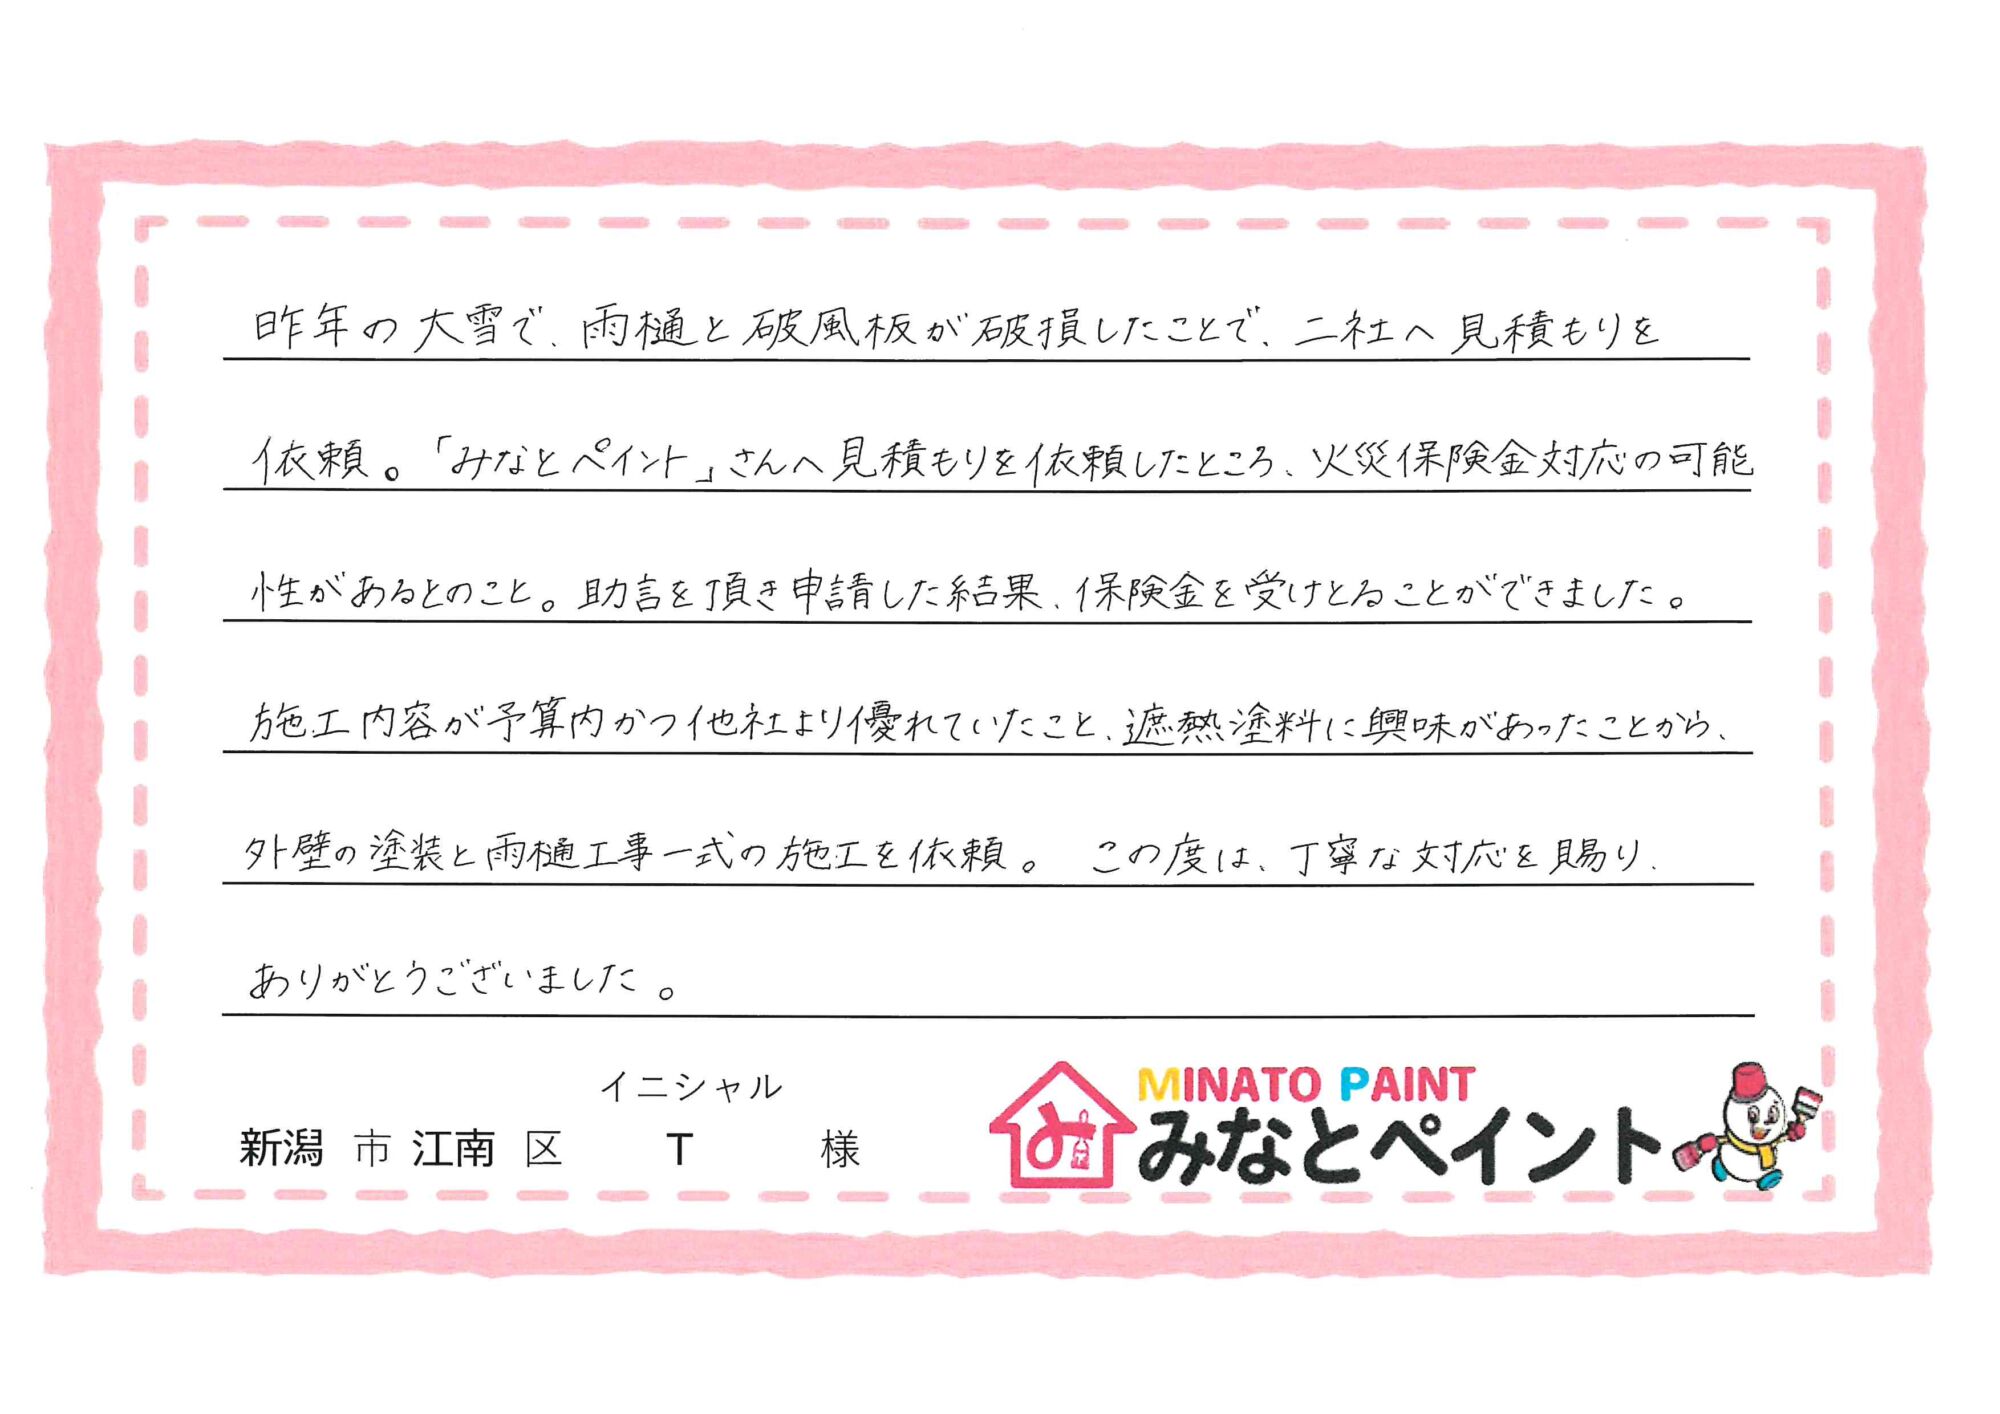 昨年の大雪で、雨樋と破風板が破損したことで、二社へ見積もりを
依頼。「みなとペイント」さんへ見積もりを依頼したところ、火災保険金対応の可能
性があるとのこと。助言を頂き申請した結果、保険金を受けとることができました。
施工内容が予算内かつ他社より優れていたこと、遮熱塗料に興味があったことから、
外壁の塗装と雨樋工事一式の施工を依頼。 この度は、丁寧な対応を賜り、
ありがとうございました。
イニシャル
新潟 市 江南 区 T 様
MINATO PAINT
みなとペイント